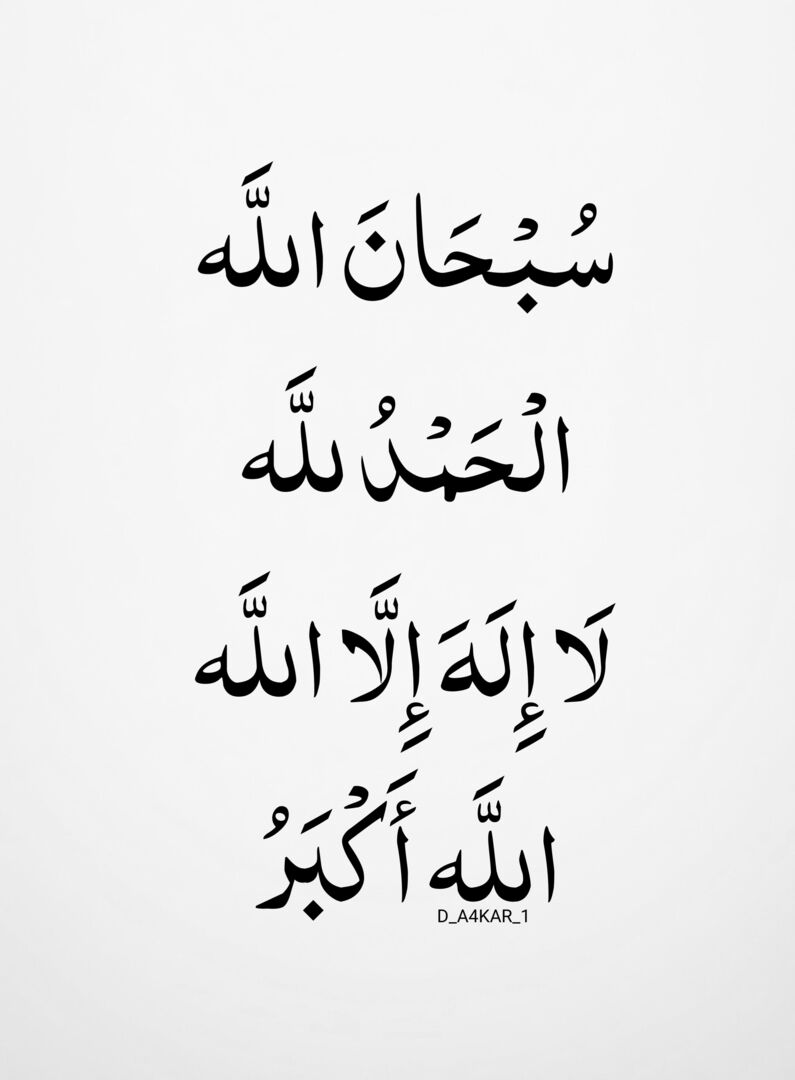 سُبْحَانَ اللَّه
الْحَمْدُ للَّه
لَا إِلَهَ إِلَّا اللَّه
اللَّه أَكْبَرُ
D_A4KAR_1